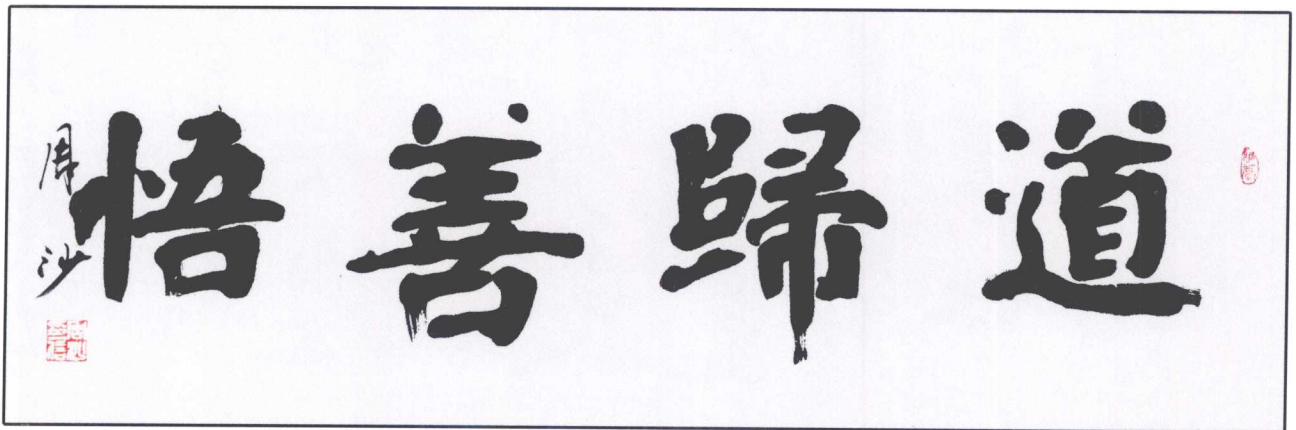 道歸善悟
周沙